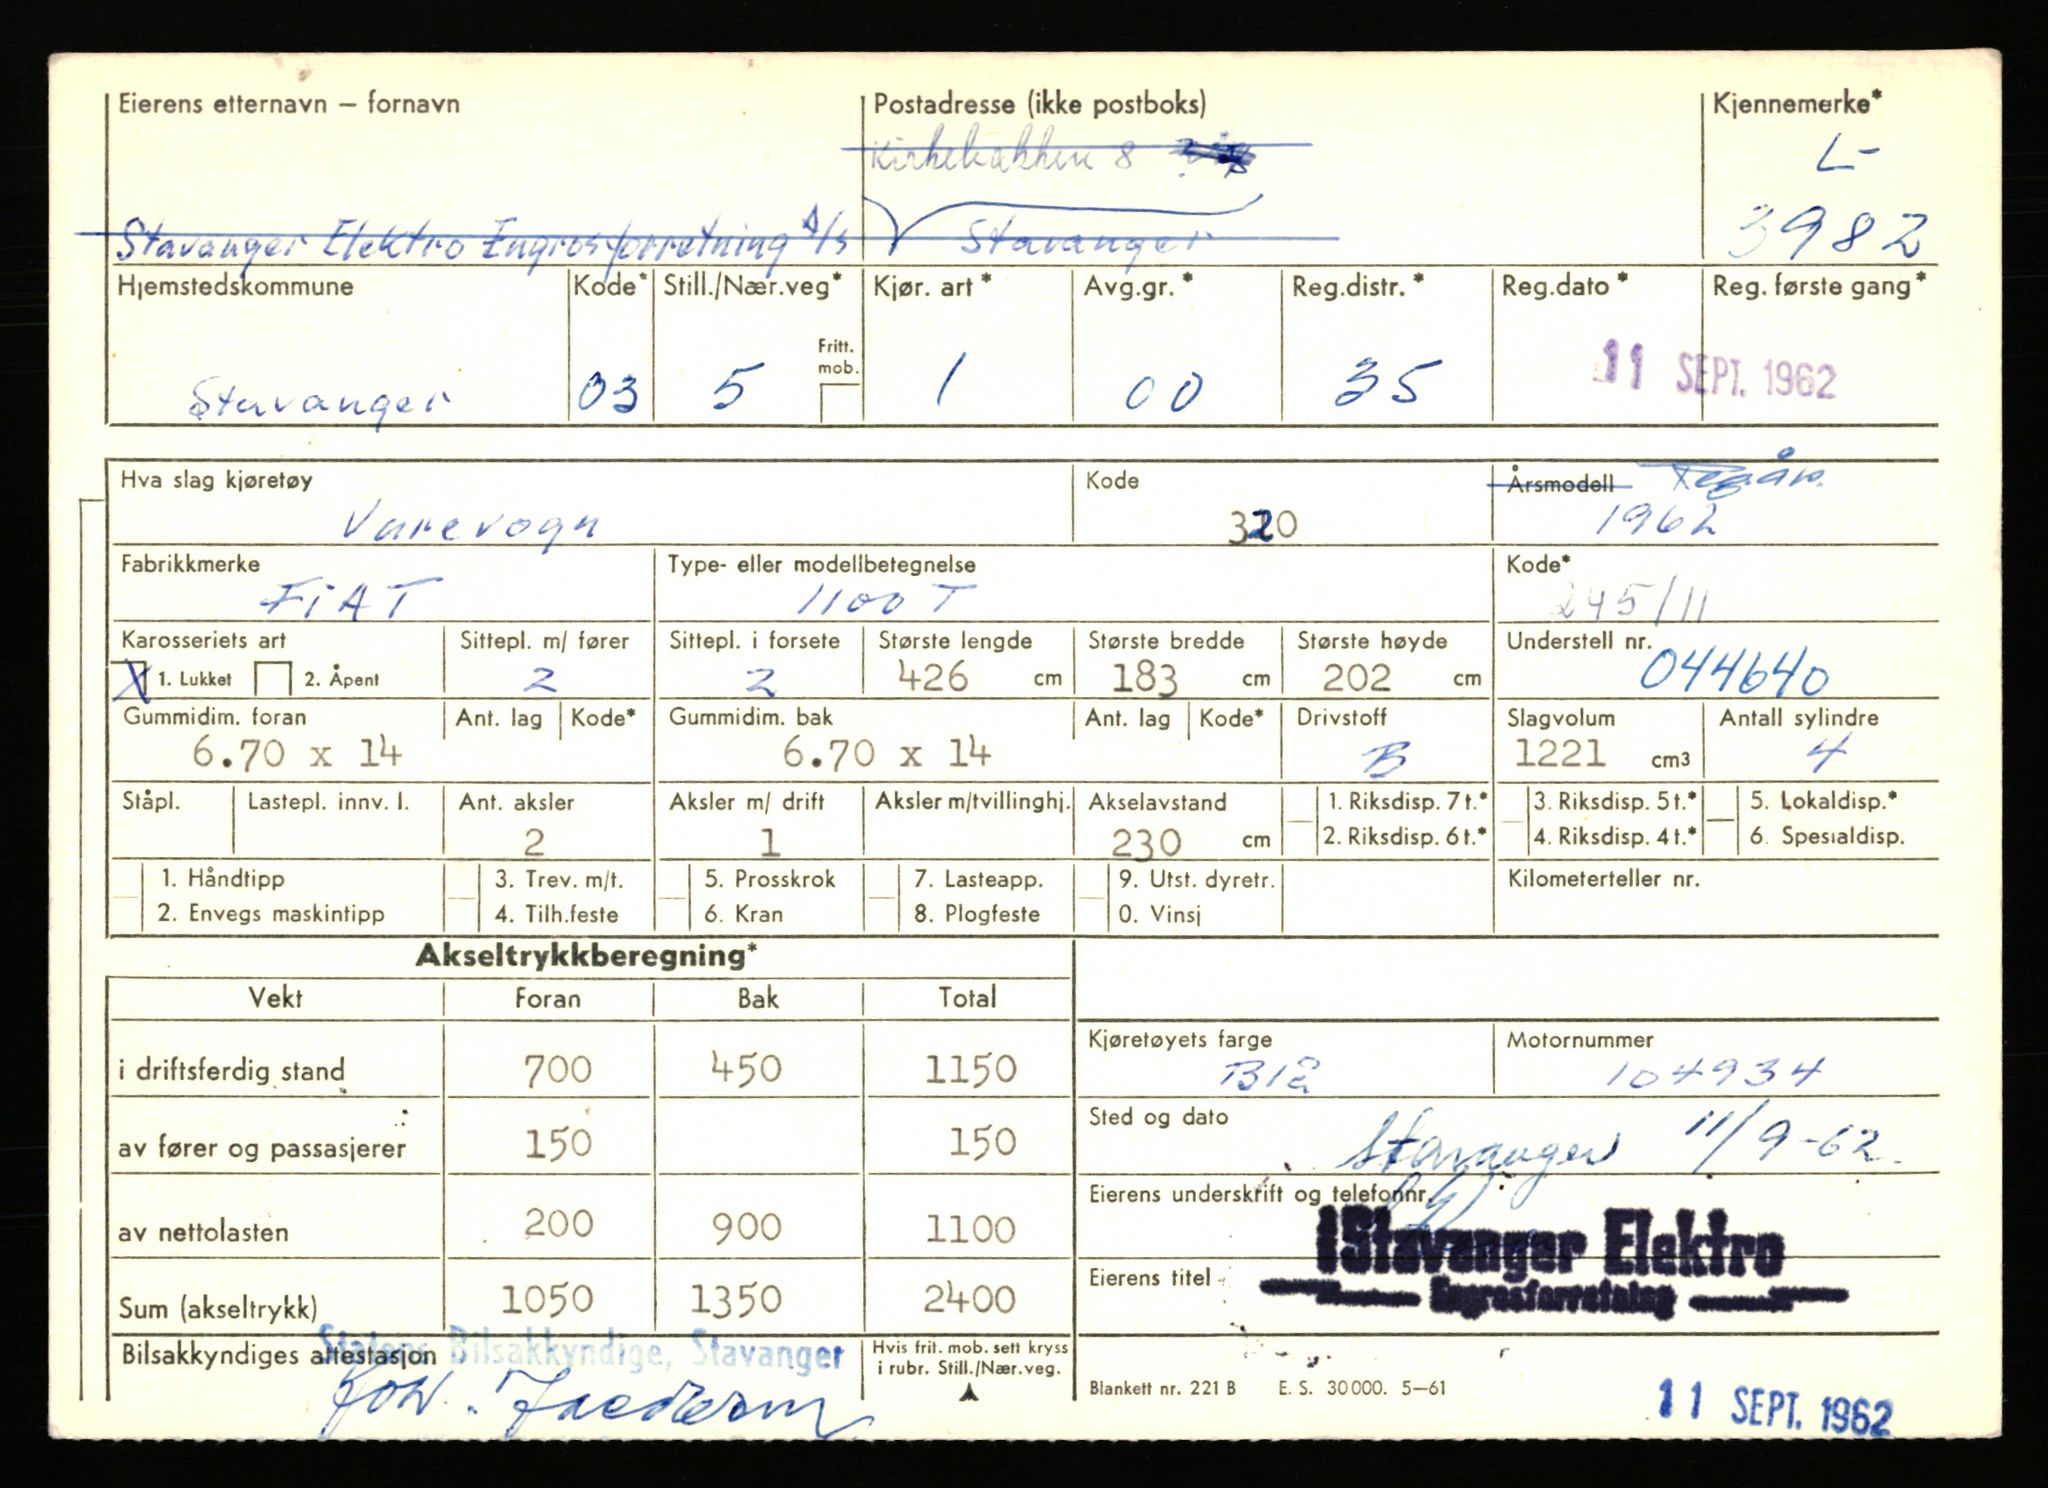 Eierens etternavn – fornavn Postadresse (ikke postboks) Kjennemerke*
Kirkebakken 8 L-
Stavanger Elektro Engrosforretning A/S Stavanger 3982
Hjemstedskommune Kode* Still./Nær.veg* Kjør. art* Avg.gr.* Reg.distr.* Reg.dato* Reg. første gang*
Fritt. mob.
Stavanger 03 5 1 00 35 11 SEPT. 1962
Hva slag kjøretøy Kode Årsmodell Reg.år.
Varevogn 320 1962
Fabrikkmerke Type- eller modellbetegnelse Kode*
FIAT 1100 T 245/11
Karosseriets art Sittepl. m/ fører Sittepl. i forsete Største lengde Største bredde Største høyde Understell nr.
X 1. Lukket 2. Åpent 2 2 426 cm 183 cm 202 cm 044640
Gummidim. foran Ant. lag Kode* Gummidim. bak Ant. lag Kode* Drivstoff Slagvolum Antall sylindre
6.70 x 14 6.70 x 14 B 1221 cm3 4
Ståpl. Lastepl. innv. l. Ant. aksler Aksler m/ drift Aksler m/tvillinghj. Akselavstand 1. Riksdisp. 7 t.* 3. Riksdisp. 5 t.* 5. Lokaldisp.*
2 1 230 cm 2. Riksdisp. 6 t.* 4. Riksdisp. 4 t.* 6. Spesialdisp.
1. Håndtipp 3. Trev. m/t. 5. Prosskrok 7. Lasteapp. 9. Utst. dyretr. Kilometerteller nr.
2. Envegs maskintipp 4. Tilh.feste 6. Kran 8. Plogfeste 0. Vinsj
Akseltrykkberegning*
Vekt Foran Bak Total
i driftsferdig stand 700 450 1150
av fører og passasjerer 150 150
av nettolasten 200 900 1100
Sum (akseltrykk) 1050 1350 2400
Kjøretøyets farge Motornummer
Blå 104934
Sted og dato
Stavanger 11/9-62.
Eierens underskrift og telefonnr.
Stavanger Elektro
Eierens titel
Engrosforretning
Statens Bilsakkyndige, Stavanger
Bilsakkyndiges attestasjon
Hvis frit. mob. sett kryss
i rubr. Still./Nær.veg.
Blankett nr. 221 B E. S. 30000. 5–61
11 SEPT. 1962